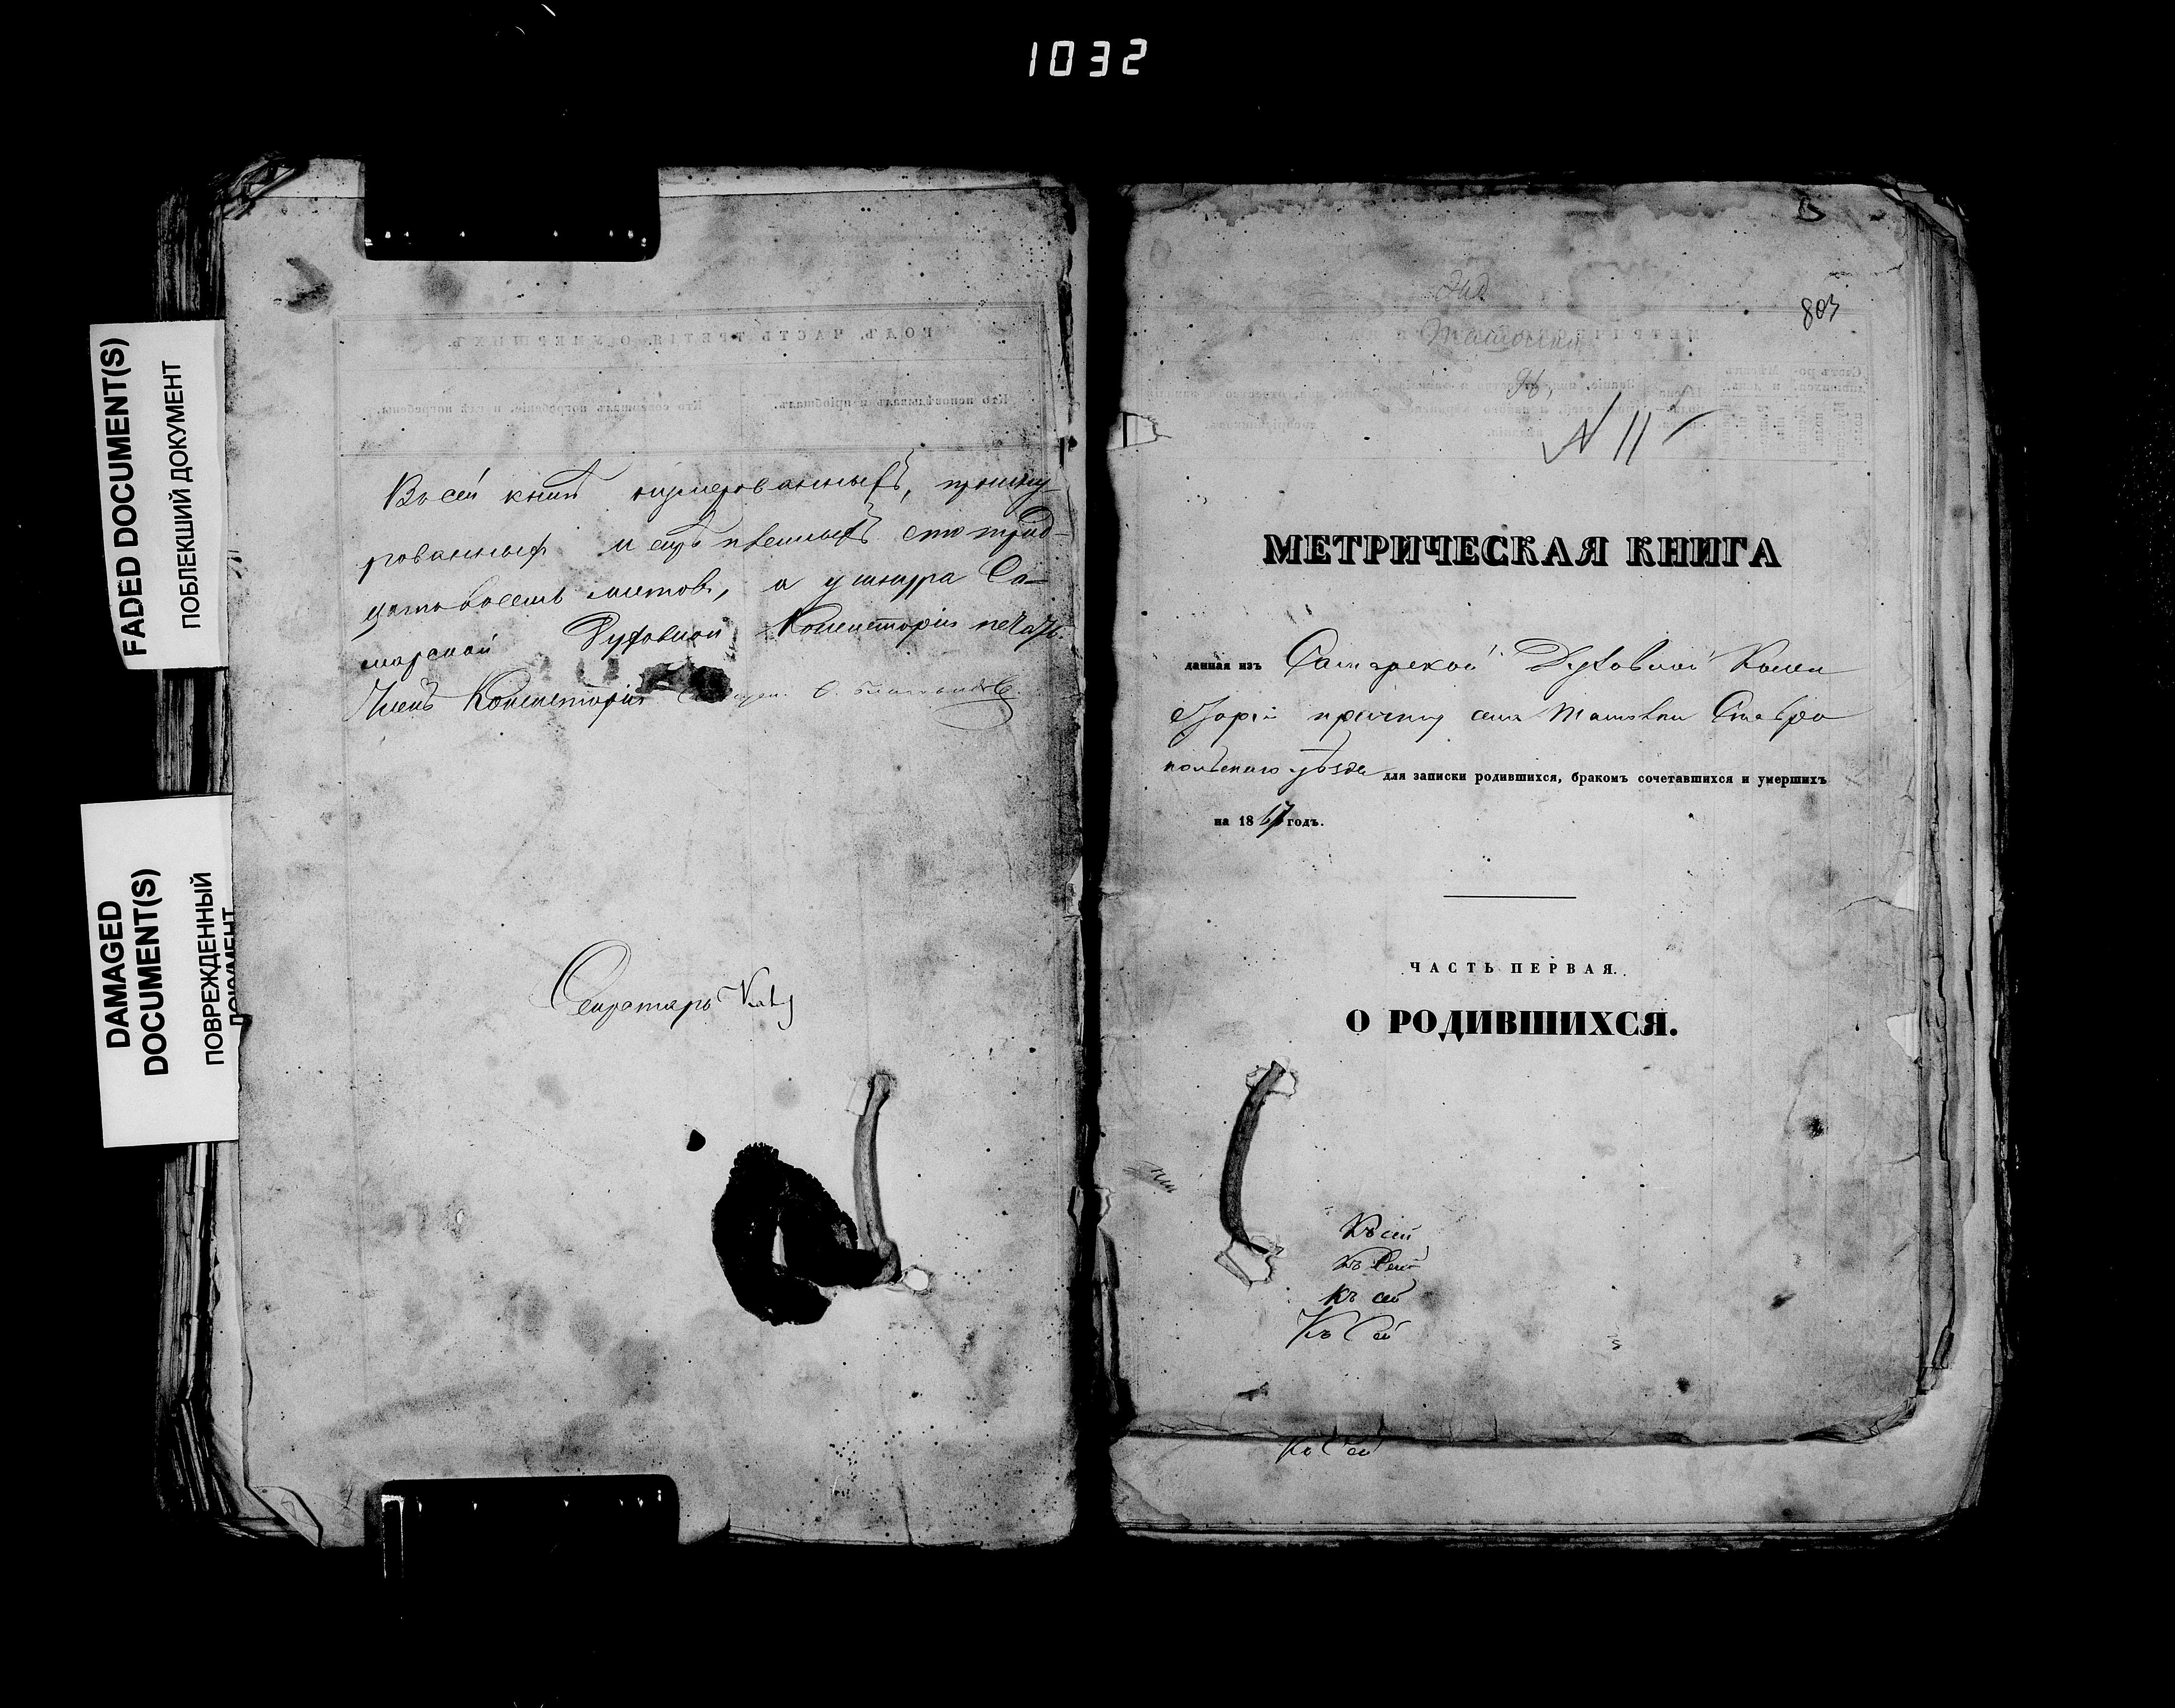 1032
FADED DOCUMENT(S)
ПОБЛЕКШИЙ ДОКУМЕНТ
DAMAGED
DOCUMENT(S)
ПОВРЕЖДЕННЫЙ
ДОКУМЕНТ
ГОДЪ, ЧАСТЬ ТРЕТІЯ, О УМЕРШИХЪ.
Кто исповѣдывалъ и пріобщалъ.
Кто совершалъ погребеніе, и гдѣ погребены.
Въ сей книгѣ нумерованныхъ, прошну
рованныхъ и скрѣпленныхъ сто трид-
цать восемь листовъ, и у шнура Са-
марской Духовной Консисторіи печать.
Членъ Консисторіи
Секретарь
803
N 11
МЕТРИЧЕСКАЯ КНИГА
данная изъ Самарской Духовной Конси
сторіи причту села Ташовки Ставро
польскаго уѣзда для записки родившихся, бракомъ сочетавшихся и умершихъ
на 1867 годъ.
ЧАСТЬ ПЕРВАЯ.
О РОДИВШИХСЯ.
Къ сей
Къ Сей
Къ сей
Къ Сей
Къ Сей